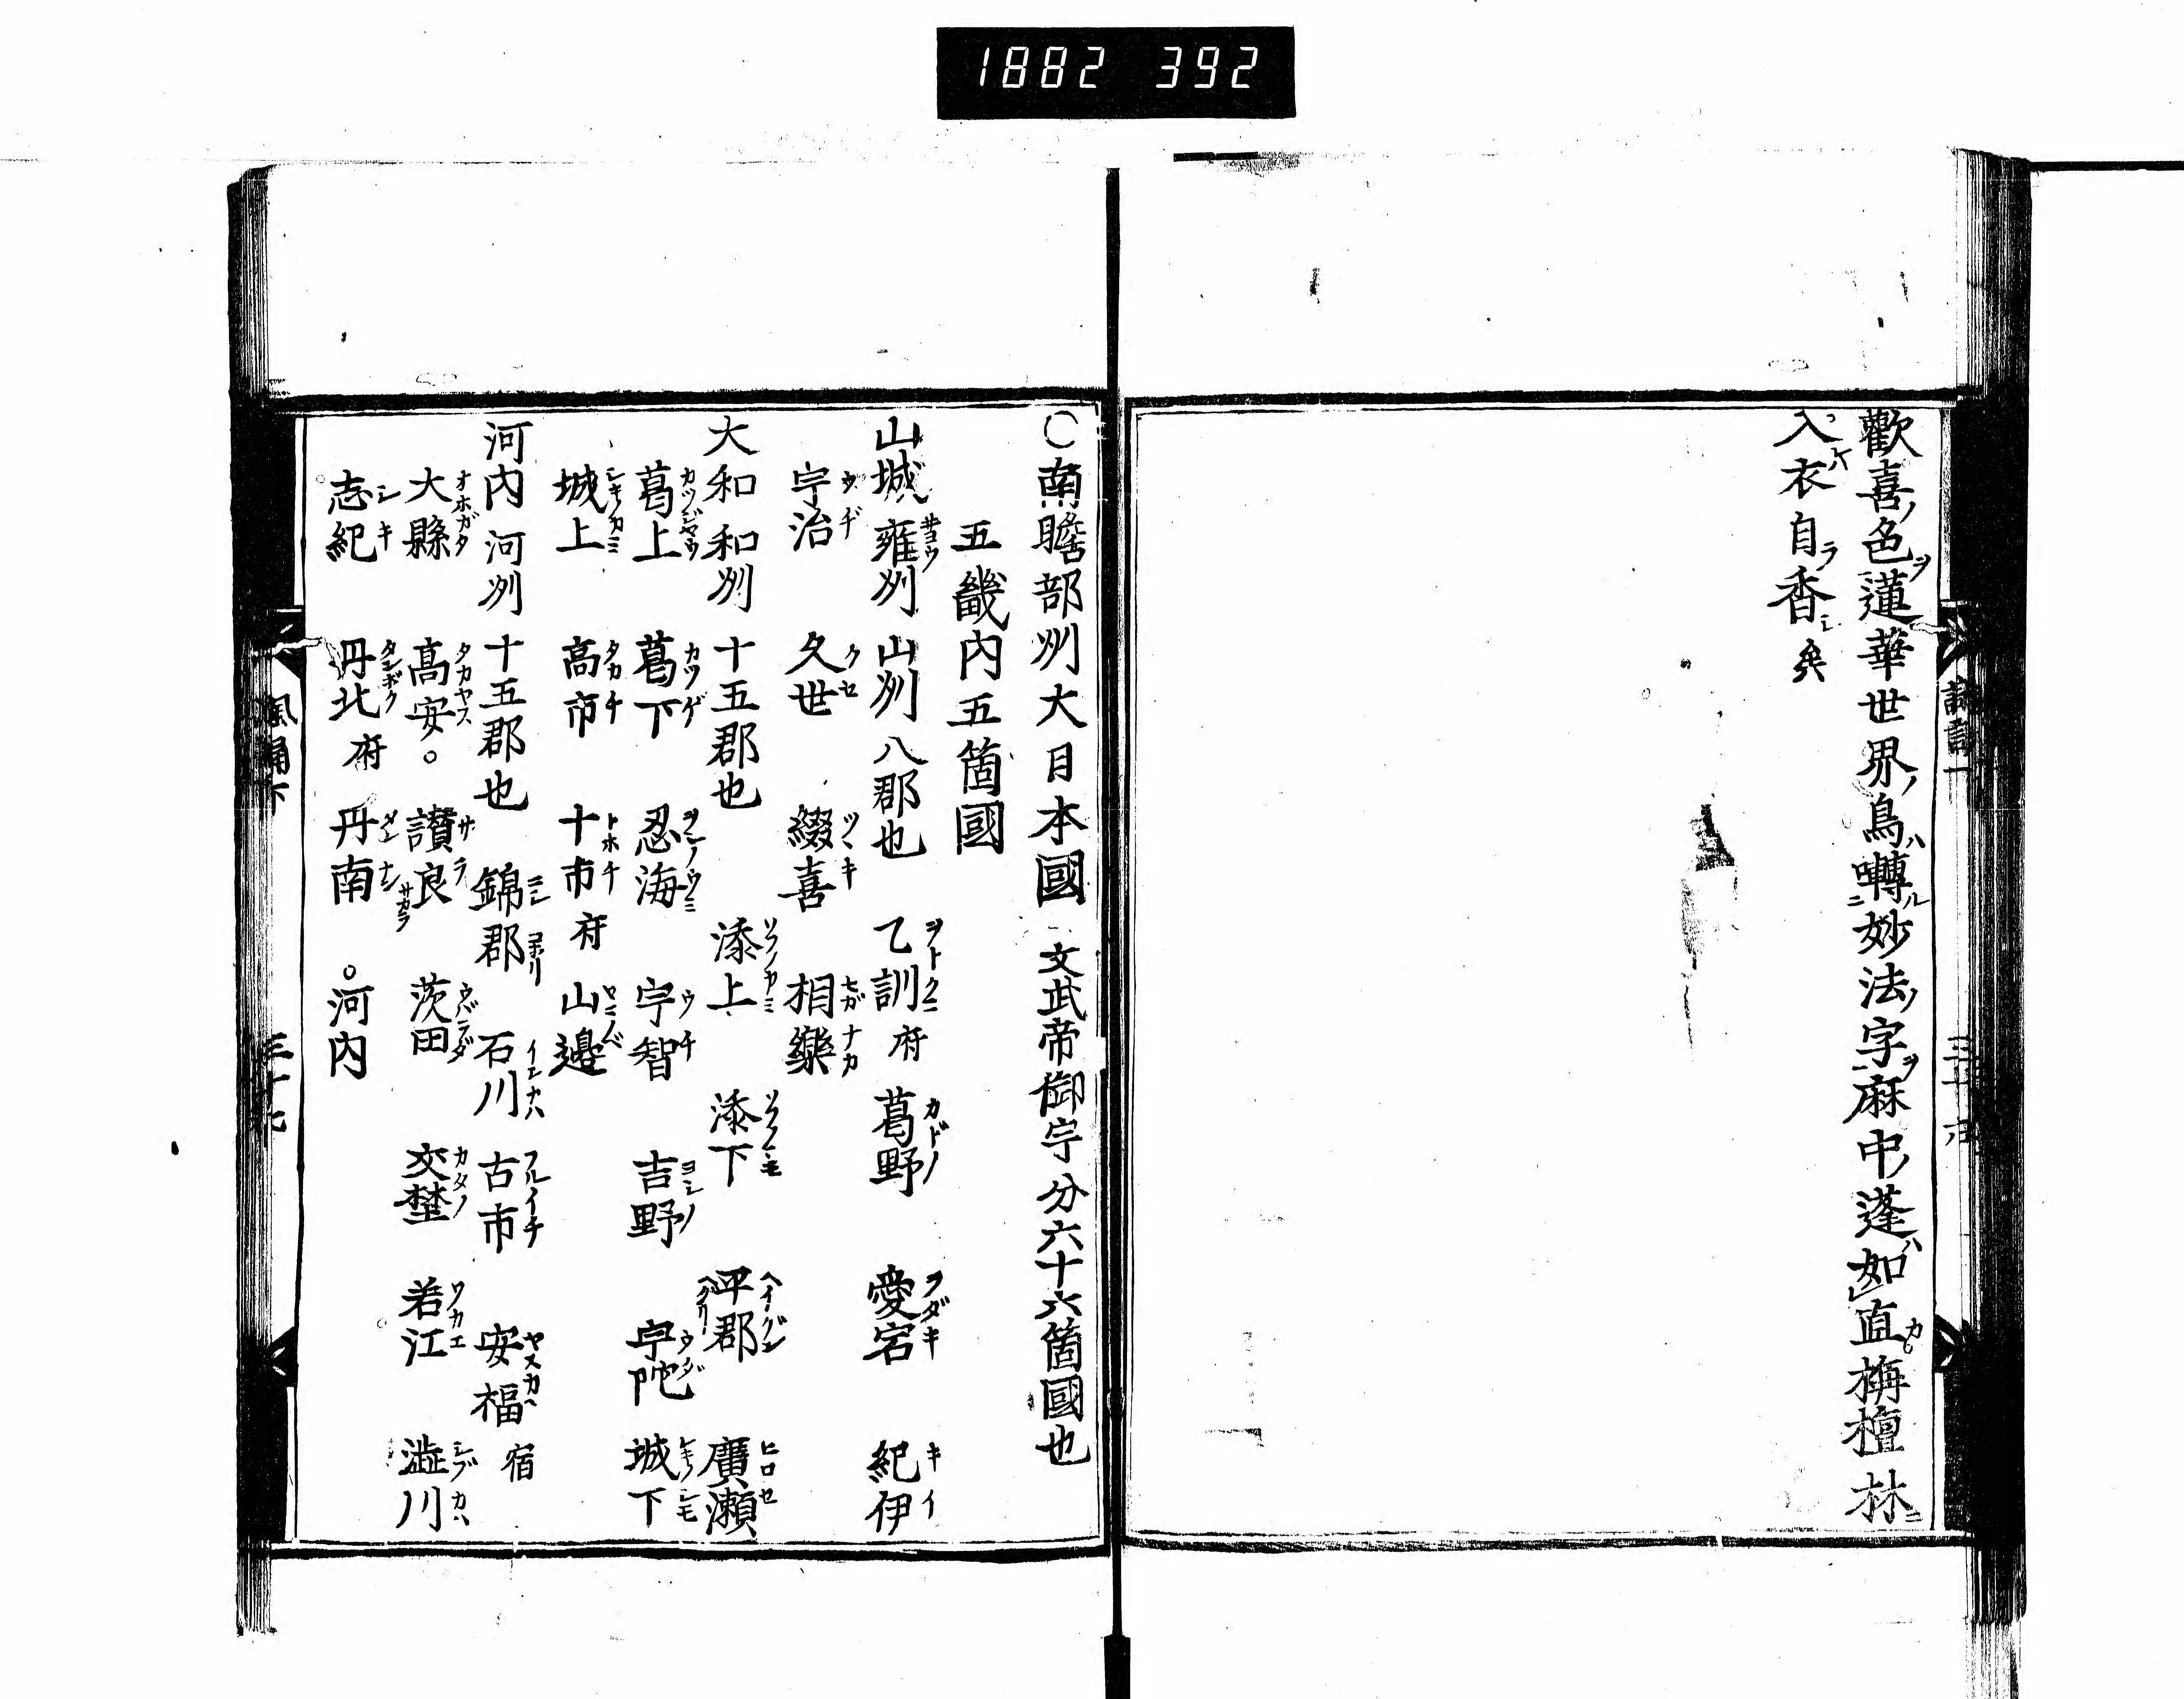 1882 392
歡喜色蓮華世界鳥囀妙法字麻中蓬如直栴檀林
入衣自香矣
〇南瞻部州大日本國 文武帝御宇分六十六箇國也
五畿內五箇國
山城 雍州 山州 八郡也 乙訓府 葛野 愛宕 紀伊
宇治 久世 綴喜 相樂
大和 和州 十五郡也 添上 添下 平郡 廣瀬
葛上 葛下 忍海 宇智 吉野 宇陀 城下
城上 高市 十市府 山邊
河內 河州 十五郡也 錦郡 石川 古市 安福宿
大縣 高安。 讃良 茨田 交埜 若江 澁川
志紀 丹北府 丹南 。河內
三十七